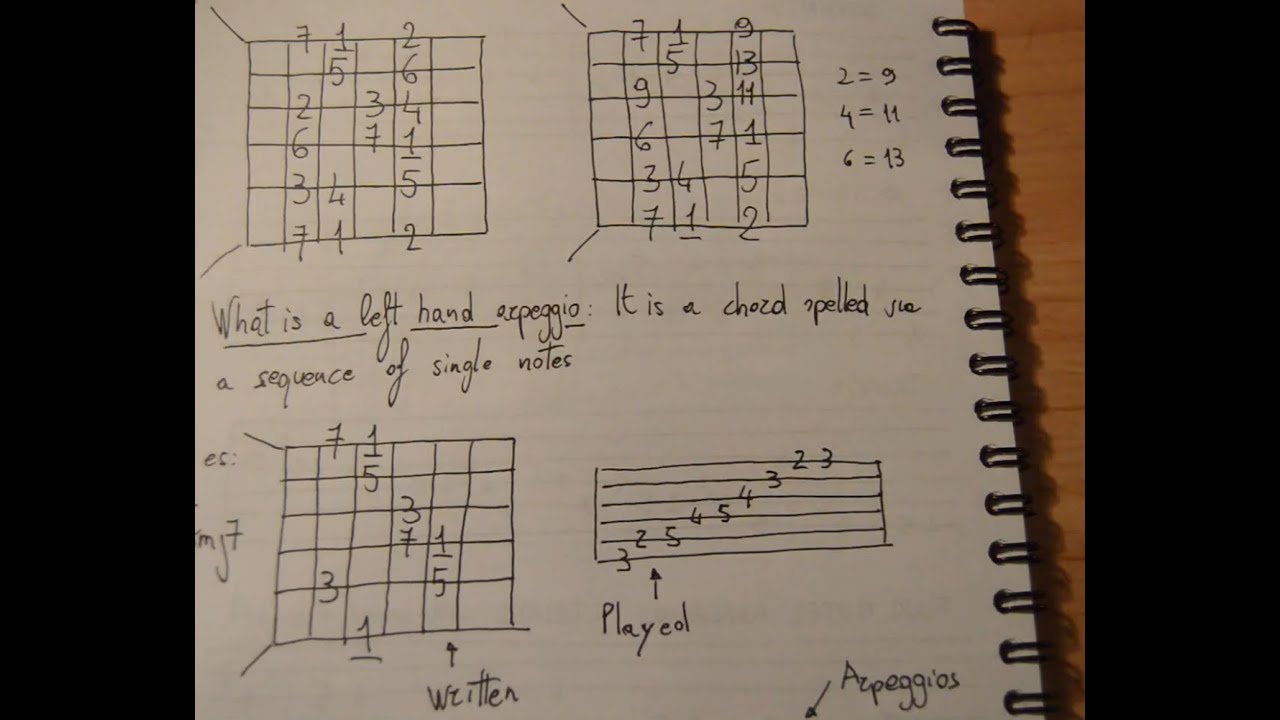 7 1 2
5 6
2 3 4
6 7 1
3 4 5
7 1 2
7 1 9
5 13
9 3 11
6 7 1
3 4 5
7 1 2
2 = 9
4 = 11
6 = 13
What is a left hand arpeggio: It is a chord spelled via
a sequence of single notes
es:
mj7
7 1
5
3
7 1
3 5
1
written
2 3
3
4
4 5
2 5
3
Played
Arpeggios